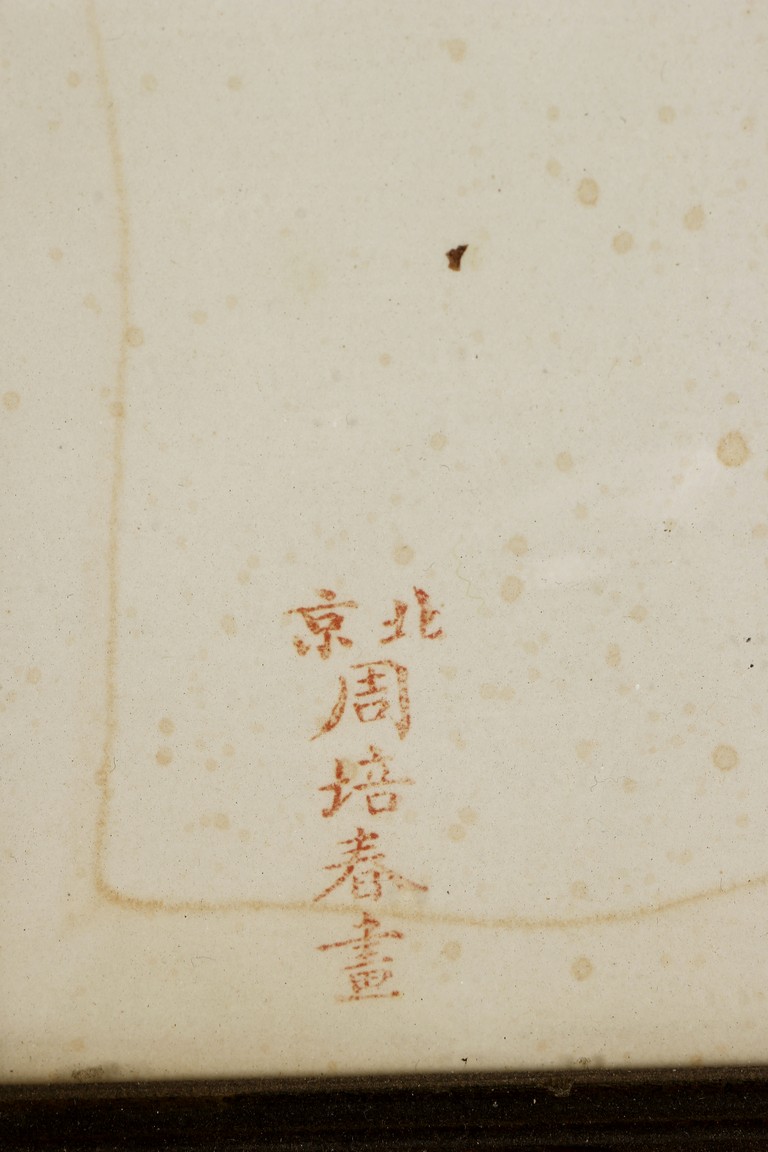 北京
周培春畫